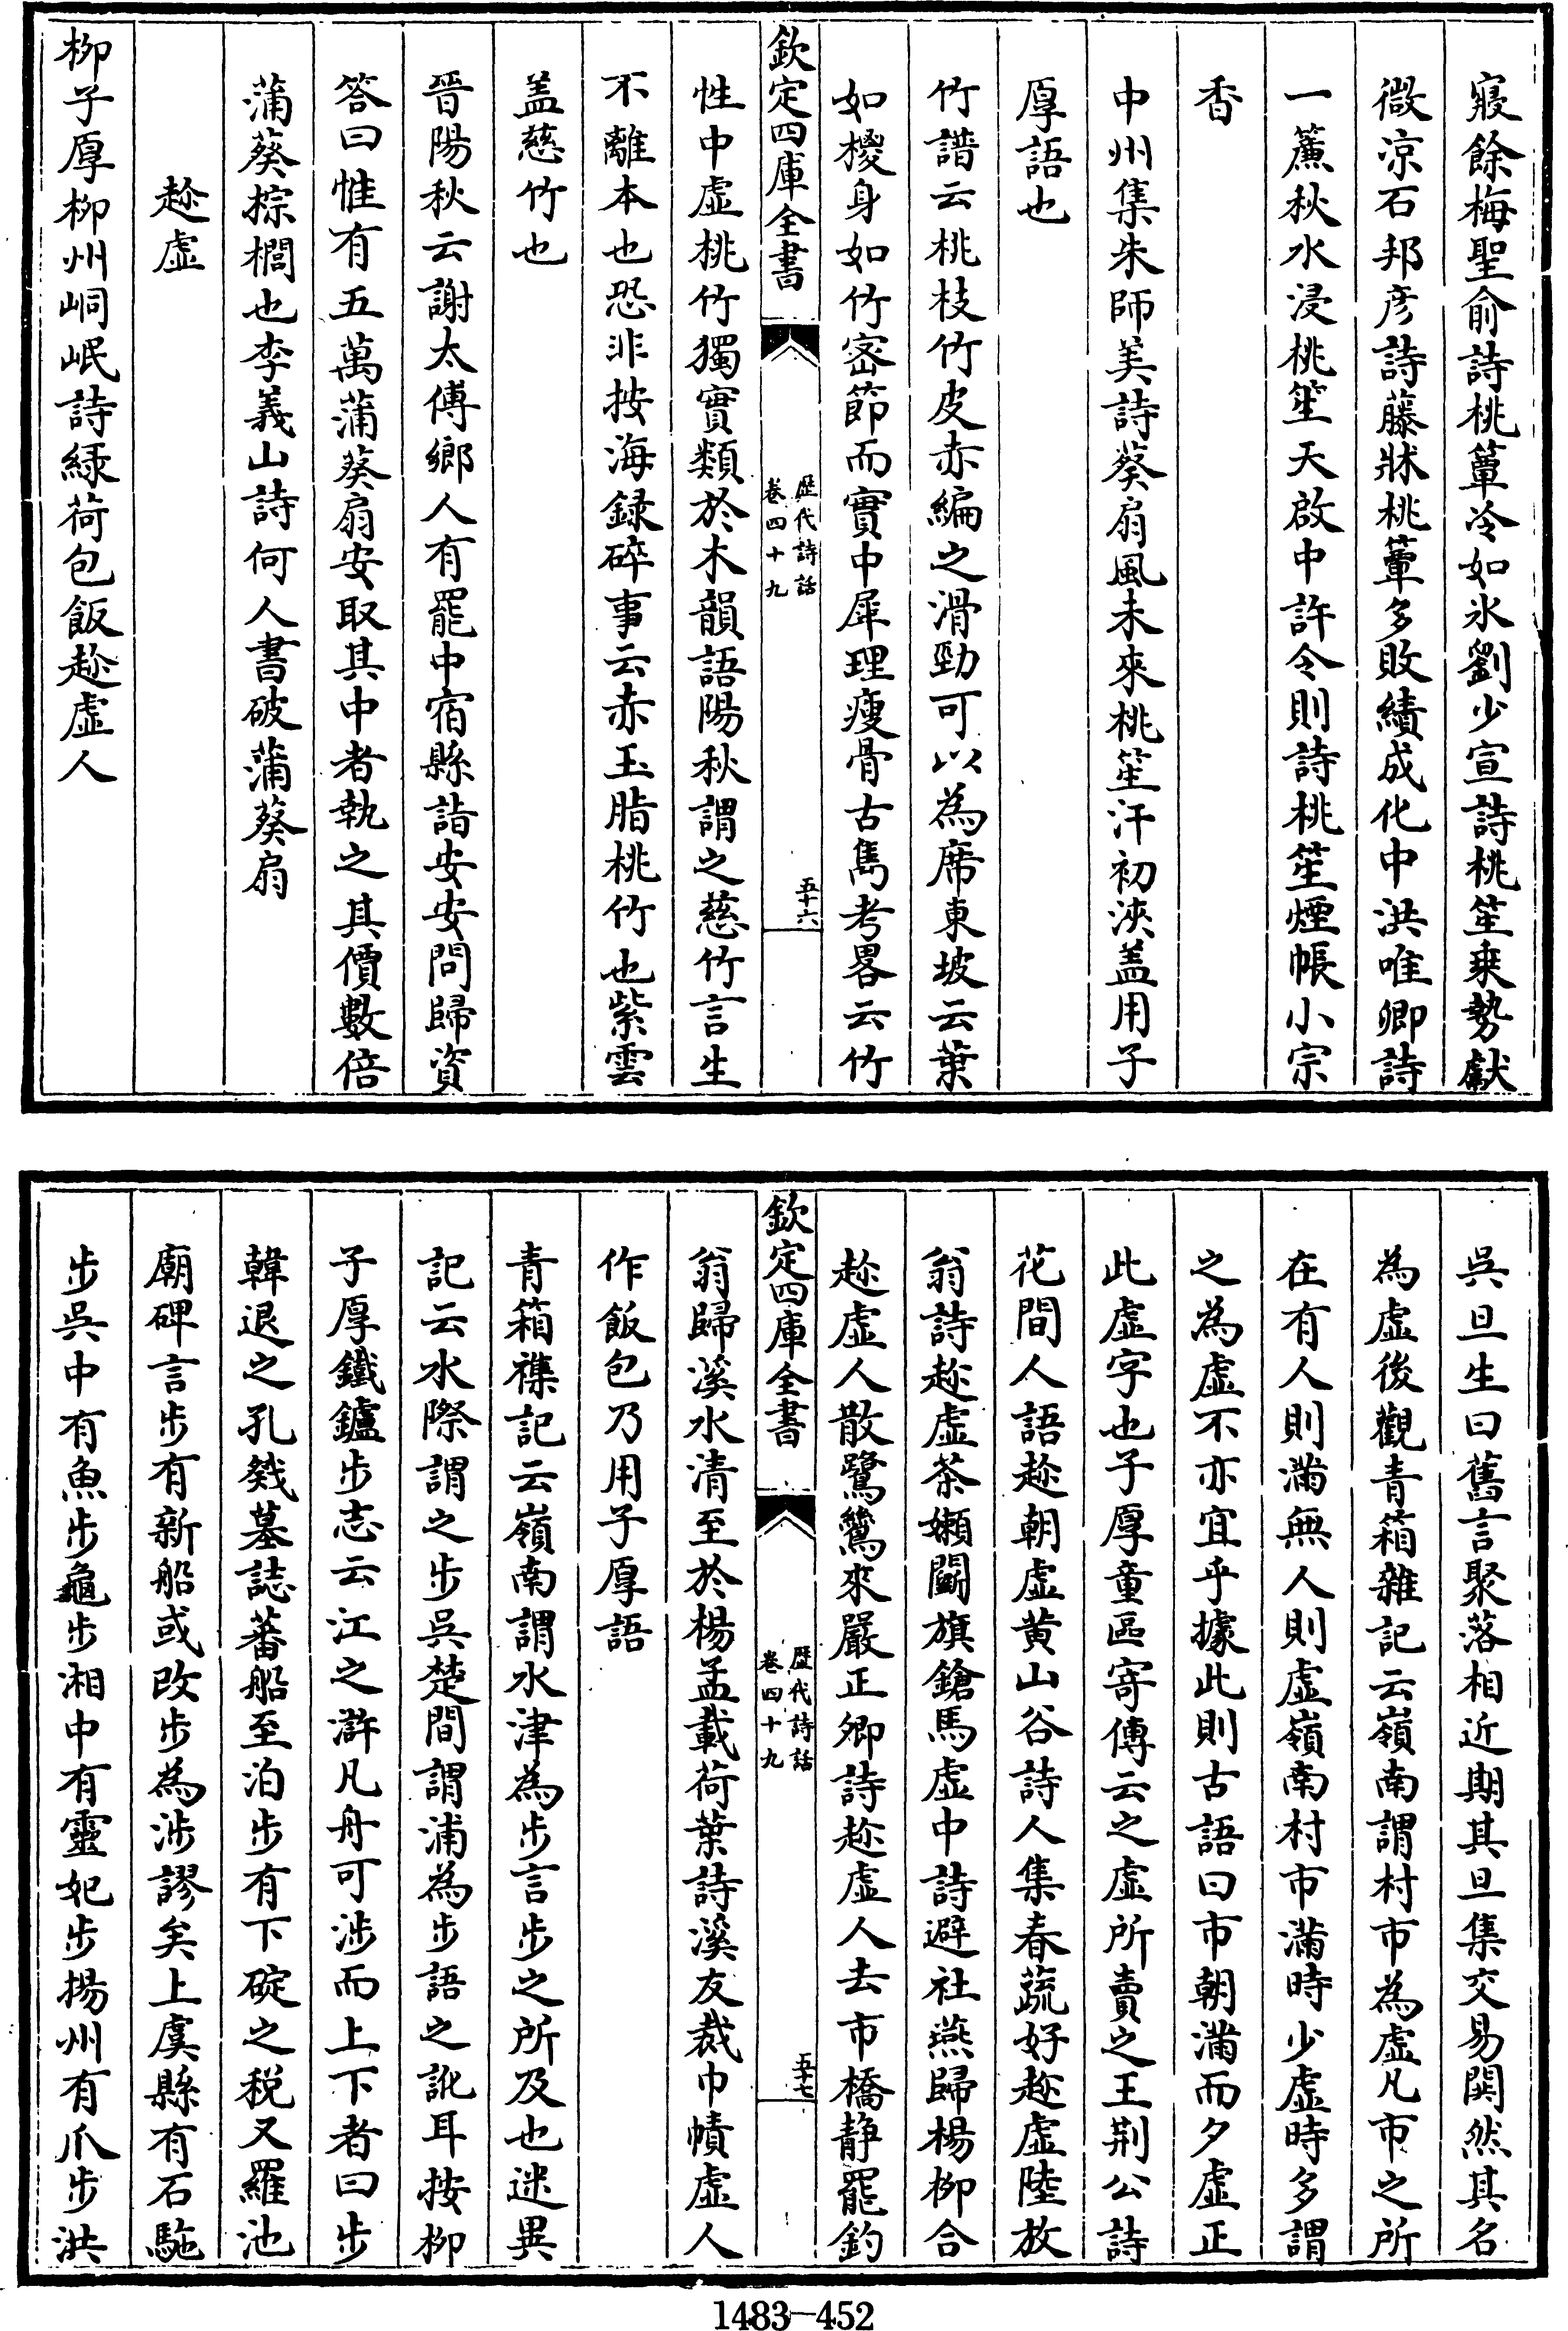 寢餘梅聖俞詩桃簟冷如氷劉少宣詩桃笙乗勢獻
微凉石邦彦詩藤牀桃蕈多敗績成化中洪唯卿詩
一簾秋水浸桃笙天啟中許令則詩桃笙煙帳小宗
香
中州集朱師美詩葵扇風未來桃笙汗初浹盖用子
厚語也
竹譜云桃枝竹皮赤編之滑勁可以為席東坡云葉
如椶身如竹宻節而實中犀理瘦骨古雋考畧云竹
欽定四庫全書
歴代詩話
卷四十九
五十六
性中虚桃竹獨實類於木韻語陽秋謂之慈竹言生
不離本也恐非按海録碎事云赤玉脂桃竹也紫雲
盖慈竹也
晉陽秋云謝太傅鄉人有罷中宿縣詣安安問歸資
答曰惟有五萬蒲葵扇安取其中者執之其價數倍
蒲葵棕櫚也李義山詩何人書破蒲葵扇
趂虚
柳子厚柳州峒岷詩緑荷包飯趂虚人
吳旦生曰舊言聚落相近期其旦集交易鬨然其名
為虚後觀青箱雜記云嶺南謂村市為虚凡市之所
在有人則滿無人則虚嶺南村市滿時少虚時多謂
之為虚不亦宜乎據此則古語曰市朝滿而夕虚正
此虚字也子厚童區寄傳云之虚所賣之王荆公詩
花間人語趂朝虚黄山谷詩人集春蔬好趂虚陸放
翁詩趂虚茶嬾鬭旗鎗馬虚中詩避社燕歸楊柳合
趂虚人散鷺鷥來嚴正卿詩趂虚人去市橋静罷釣
欽定四庫全書
歴代詩話
卷四十九
五十七
翁歸溪水清至於楊孟載荷葉詩溪友裁巾幘虚人
作飯包乃用子厚語
青箱襍記云嶺南謂水津為步言步之所及也述異
記云水際謂之步吳楚間謂浦為步語之訛耳按柳
子厚鐵鑪步志云江之滸凡舟可涉而上下者曰步
韓退之孔戣墓誌蕃船至泊步有下碇之税又羅池
廟碑言步有新船或改步為涉謬矣上虞縣有石駞
步吳中有魚步龜步湘中有靈妃步揚州有爪步洪
1483-452